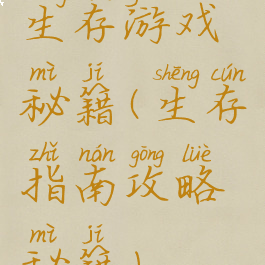 生存游戏
mì jí shēng cún
秘籍(生存
zhǐ nán gōng lüè
指南攻略
mì jí
秘籍)